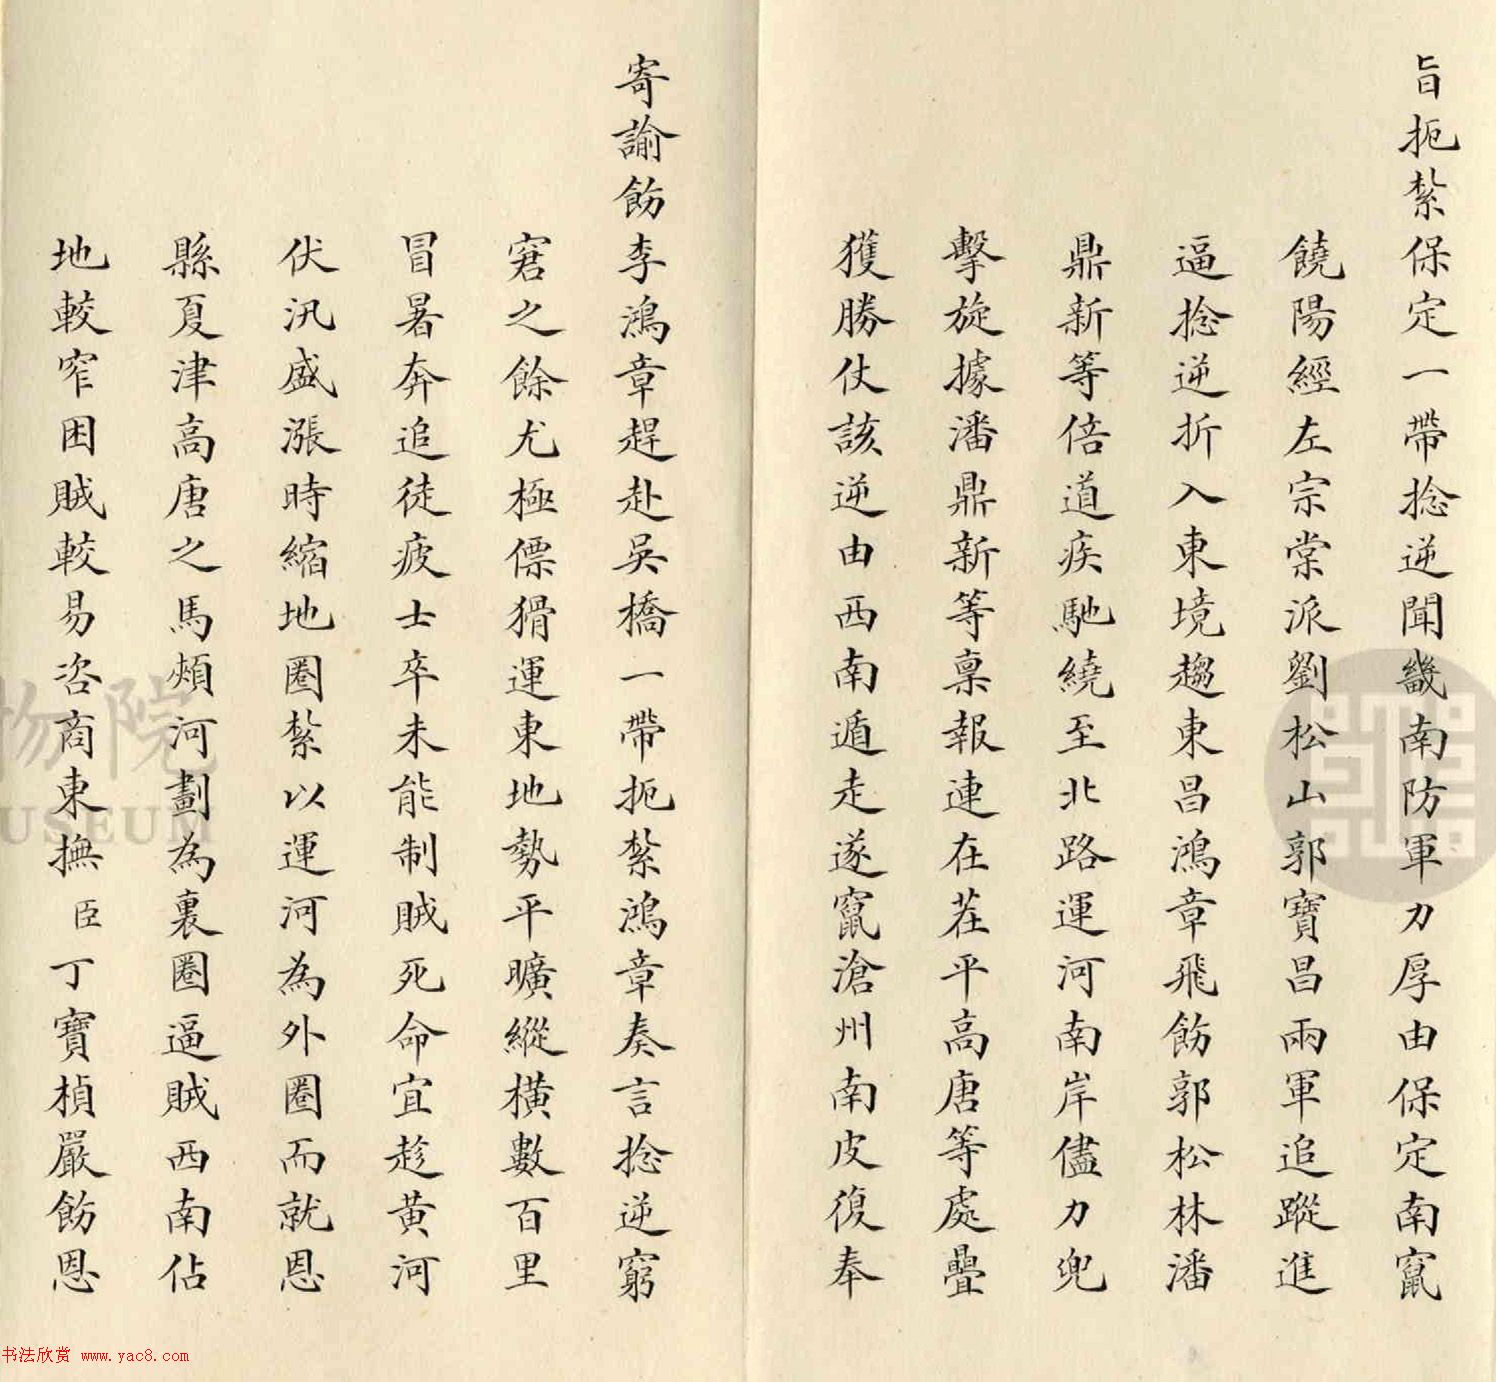 旨扼紮保定一帶捻逆聞畿南防軍力厚由保定南竄
饒陽經左宗棠派劉松山郭寶昌兩軍追蹤進
逼捻逆折入東境趨東昌鴻章飛飭郭松林潘
鼎新等倍道疾馳繞至北路運河南岸儘力兜
擊旋據潘鼎新等稟報連在茬平高唐等處疊
獲勝仗該逆由西南遁走遂竄滄州南皮復奉
寄諭飭李鴻章趕赴吳橋一帶扼紮鴻章奏言捻逆窮
窘之餘尤極僄猾運東地勢平曠縱橫數百里
冒暑奔追徒疲士卒未能制賊死命宜趁黃河
伏汛盛漲時縮地圈紮以運河為外圈而就恩
縣夏津高唐之馬頰河劃為裏圈逼賊西南佔
地較窄困賊較易咨商東撫臣丁寶楨嚴飭恩
物院
USEUM
书法欣赏 www.yac8.com